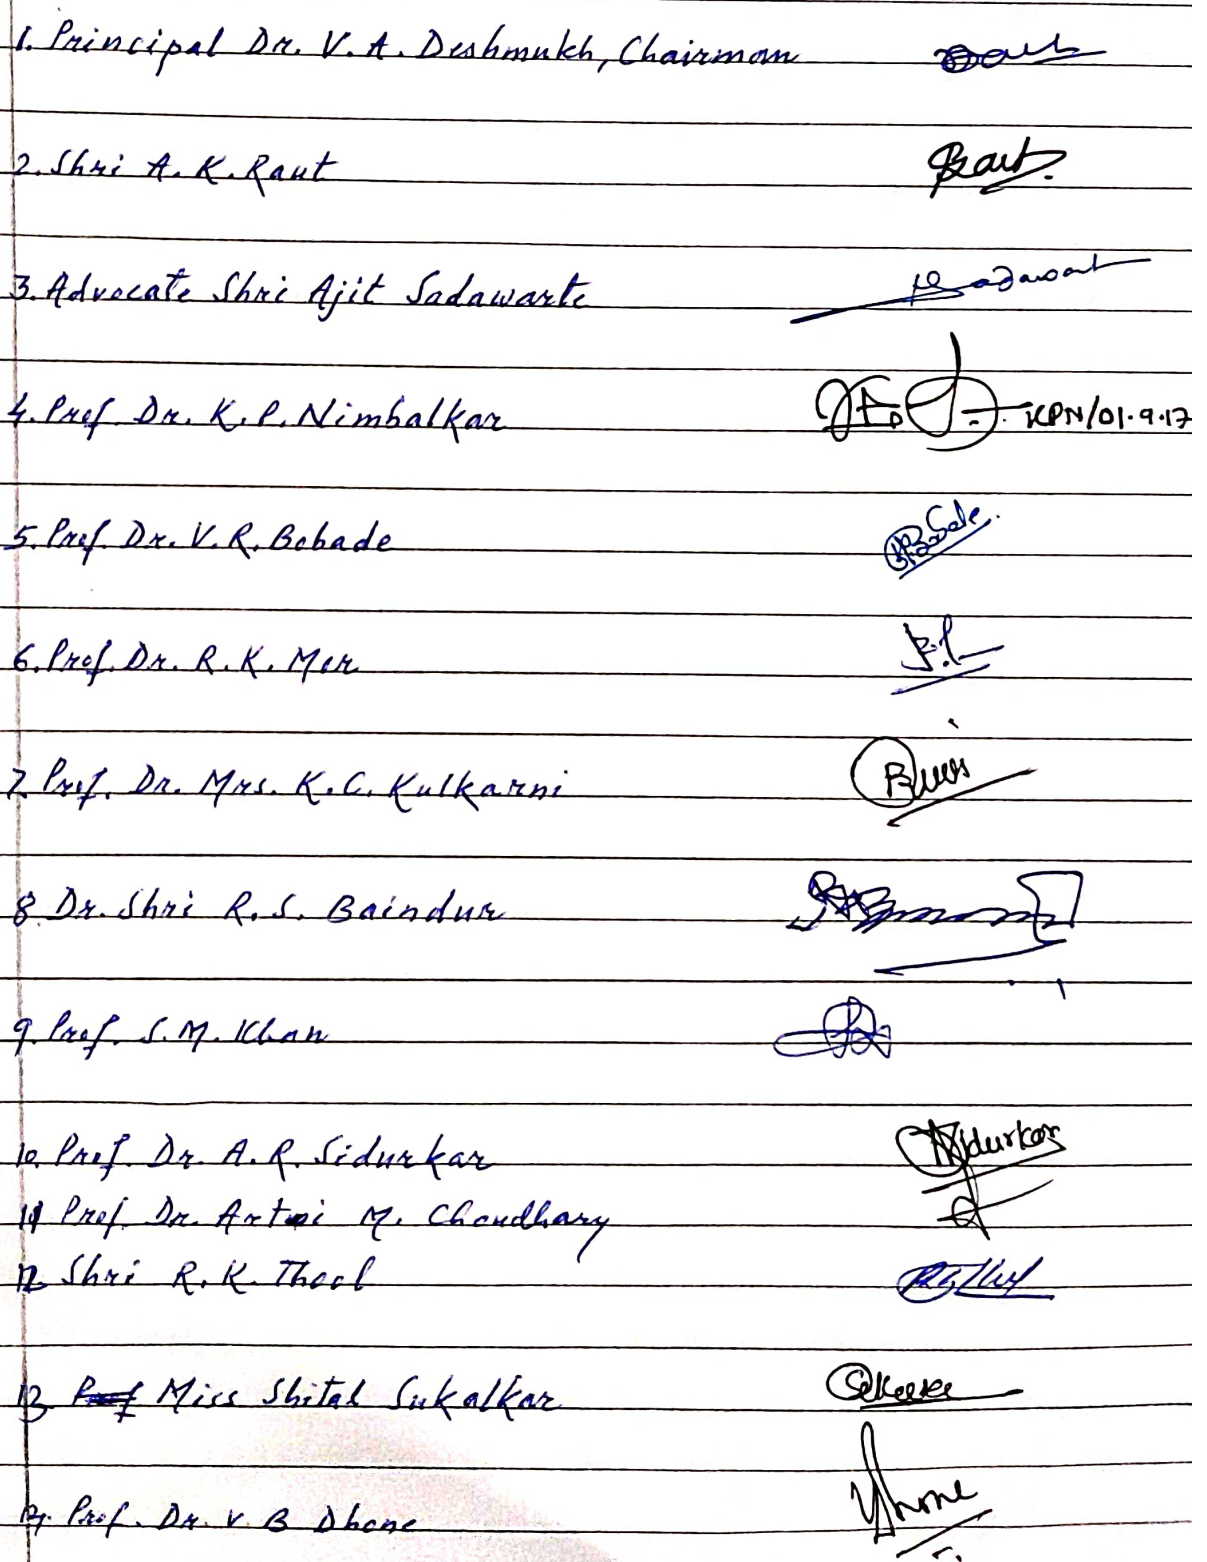 1. Principal Dr. V. A. Deshmukh, Chairman
2. Shri A. K. Raut Raut.
3. Advocate Shri Ajit Sadawarte
4. Prof. Dr. K. P. Nimbalkar KPN/01.9.17
5. Prof. Dr. V. R. Bobade
6. Prof. Dr. R. K. Mer
7. Prof. Dr. Mrs. K. C. Kulkarni
8. Dr. Shri R. S. Baindur
9. Prof. S. M. Khan
10. Prof. Dr. A. R. Sidurkar Sidurkar
11 Prof. Dr. M. Choudhary
12 Shri R. K. Thool
13 Miss Shital Sukalkar
14. Prof. Dr. V B Dhone Dhone